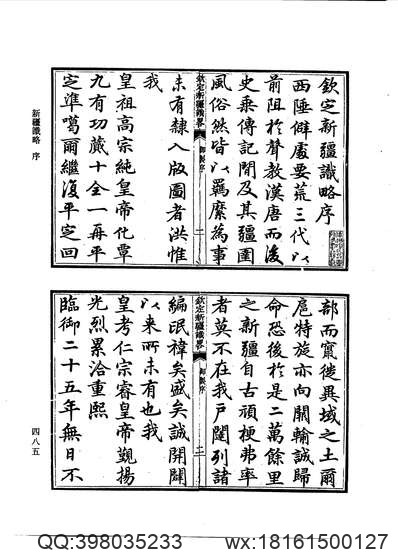 欽定新疆識略序
西陲僻處要荒三代以
前阻於聲教漢唐而後
史乘傳記間及其疆圉
風俗然皆以羈縻為事
欽定新疆識畧 御製序 一
未有隸入版圖者洪惟
我
皇祖高宗純皇帝化覃
九有功蕆十全一再平
定準噶爾繼復平定回
新疆識略 序
部而竄徙異域之土爾
扈特旋亦向關輸誠歸
命恐後於是二萬餘里
之新疆自古頑梗弗率
者莫不在我戶闥列諸
欽定新疆識畧 御製序 二
編氓禕矣盛矣誠開闢
以來所未有也我
皇考仁宗睿皇帝覲揚
光烈累洽重熙
臨御二十五年無日不
四八五
QQ:398035233
wx:18161500127